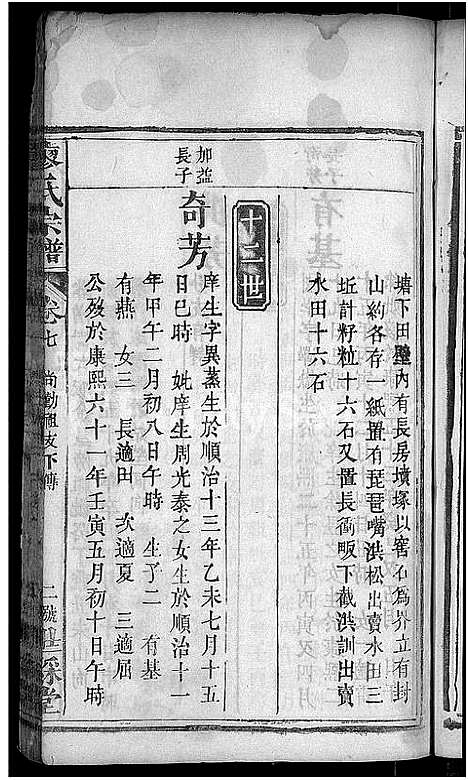 塘下田壟內有長房墳塚以窖石為界立有封
山約各存一紙置有琵琶嘴洪松出賣水田三
坵計籽粒十六石又置長衝畈下截洪訓出賣
水田十六石
十二世
加益
長子
奇芳
庠生字異蒸生於順治十三年乙未七月十五
日巳時　妣庠生周光泰之女生於順治十一
年甲午二月初八日午時　生子二　有基
有燕　女三　長適田　次適夏　三適屈
公歿於康熙六十一年壬寅五月初十日午時
袁氏宗譜
卷七
尚勤祖支下傳
二號
堂